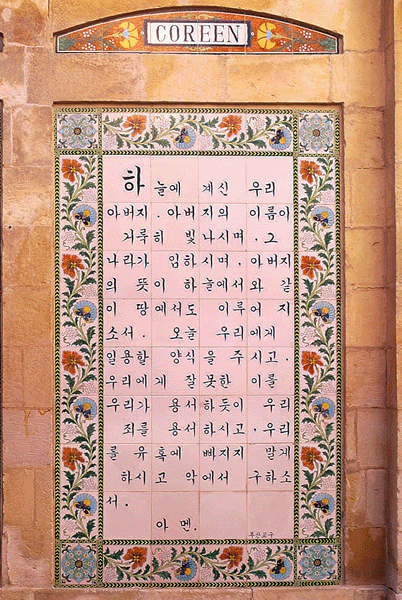 COREEN
하늘에 계신 우리
아버지. 아버지의 이름이
거룩히 빛나시며, 그
나라가 임하시며, 아버지
의 뜻이 하늘에서와 같
이 땅에서도 이루어 지
소서. 오늘 우리에게
일용할 양식을 주시고.
우리에게 잘못한 이를
우리가 용서하듯이 우리
죄를 용서하시고. 우리
를 유혹에 빠지지 말게
하시고 악에서 구하소
서.
아멘.
부산교구